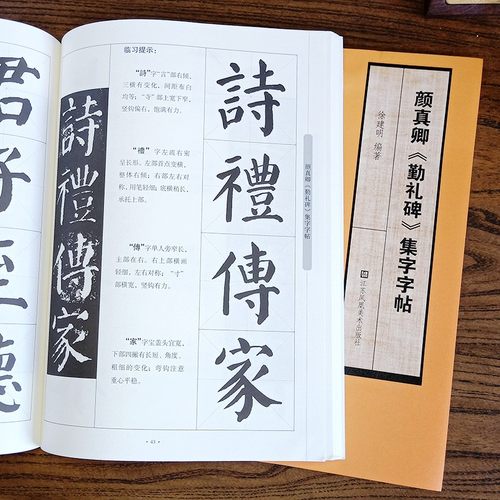 君
子
至
德
临习提示：
“詩”字“言”部右倾，
三横有变化，间距布白
均等；“寺”部上宽下窄，
竖钩偏右，饱满有力。
“禮”字左疏右密
呈长形，左部首点变横，
整体右倾；右部左右对
称，用笔轻细；底横稍长，
承托上部。
“傳”字单人旁窄长，
主部在右。右上部横画
轻细，左右对称；“寸”
部横宽，竖钩有力。
“家”字宝盖头宜宽，
下部四撇有长短、角度、
粗细的变化；弯钩注意
重心平稳。
詩禮傳家
詩
禮
傳
家
颜真卿《勤礼碑》集字字帖
·43·
颜真卿《勤礼碑》集字字帖
徐建明 编著
江苏凤凰美术出版社